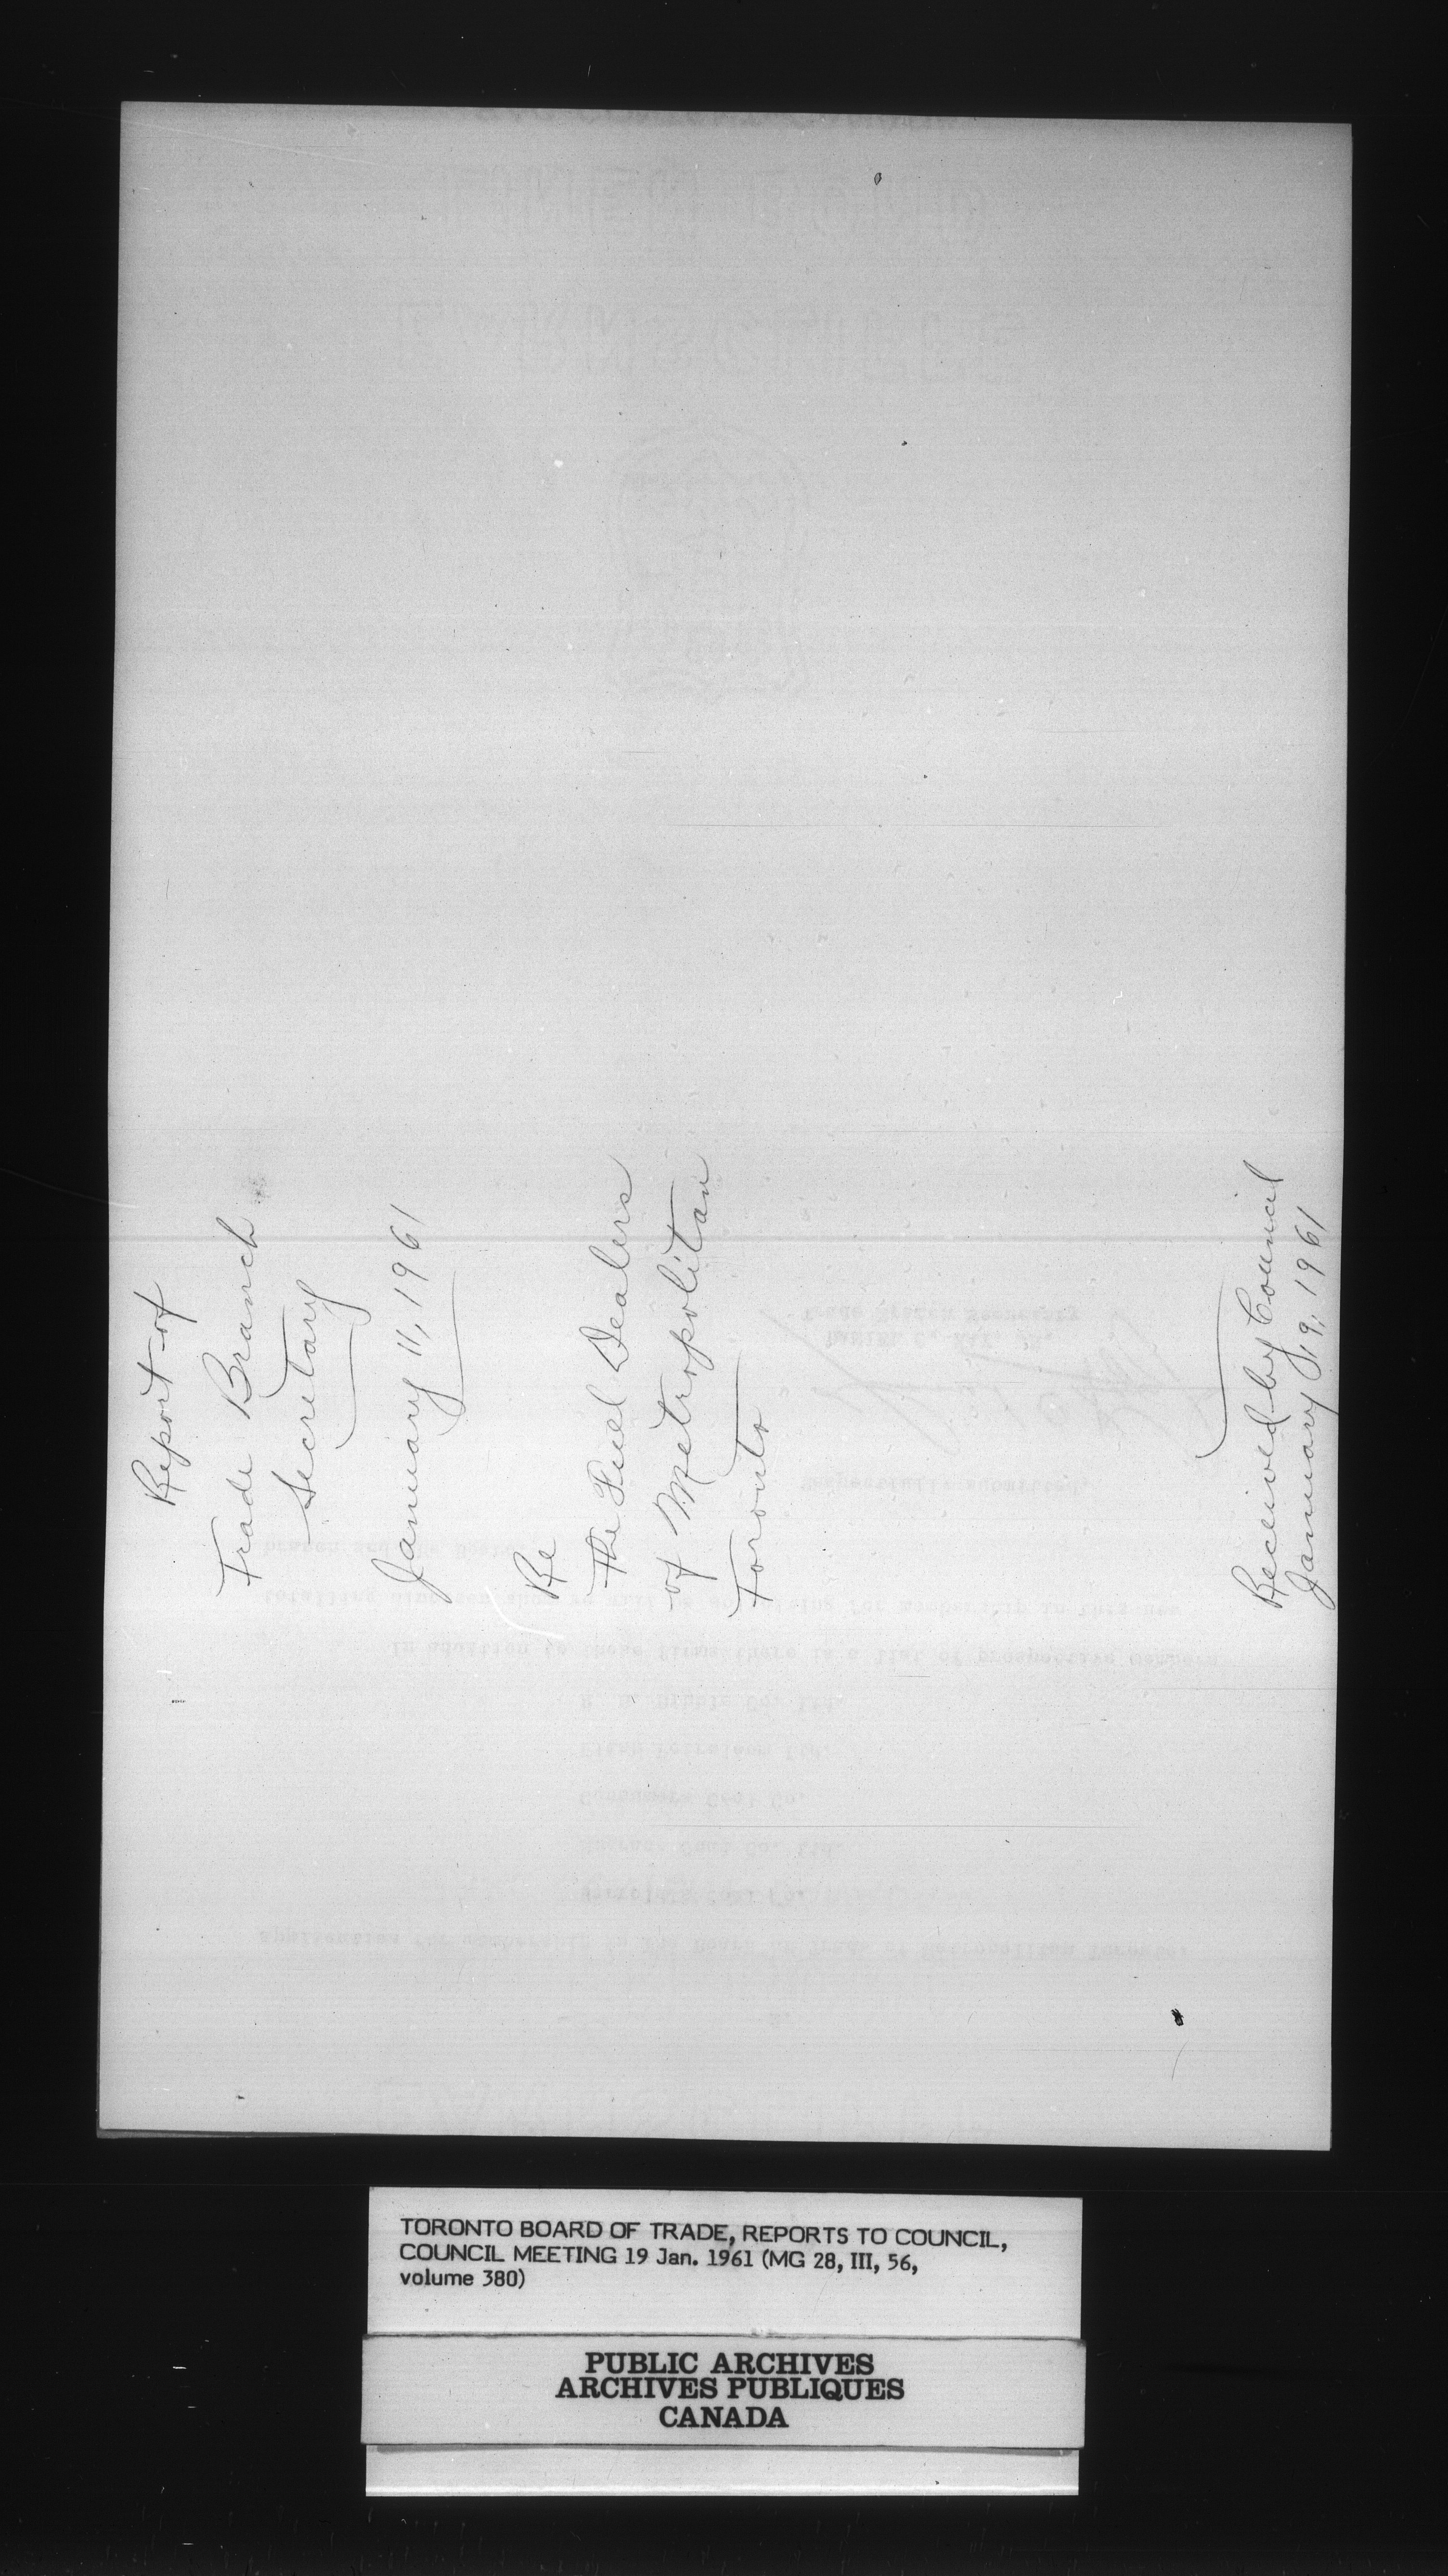 Report of
Trade Branch
Secretary
January 11, 1961
Re
The Fuel Dealers
of Metropolitan
Toronto
Received by Council
January 19, 1961
TORONTO BOARD OF TRADE, REPORTS TO COUNCIL,
COUNCIL MEETING 19 Jan. 1961 (MG 28, III, 56,
volume 380)
PUBLIC ARCHIVES
ARCHIVES PUBLIQUES
CANADA